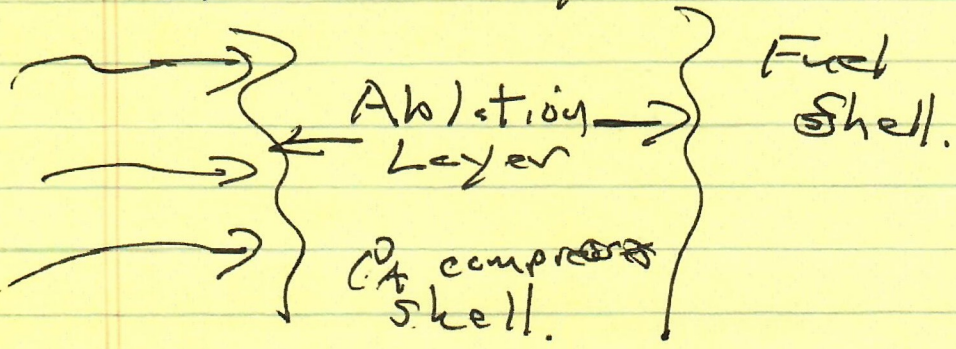 Ablation
Layer
Fuel
Shell.
compress
Shell.